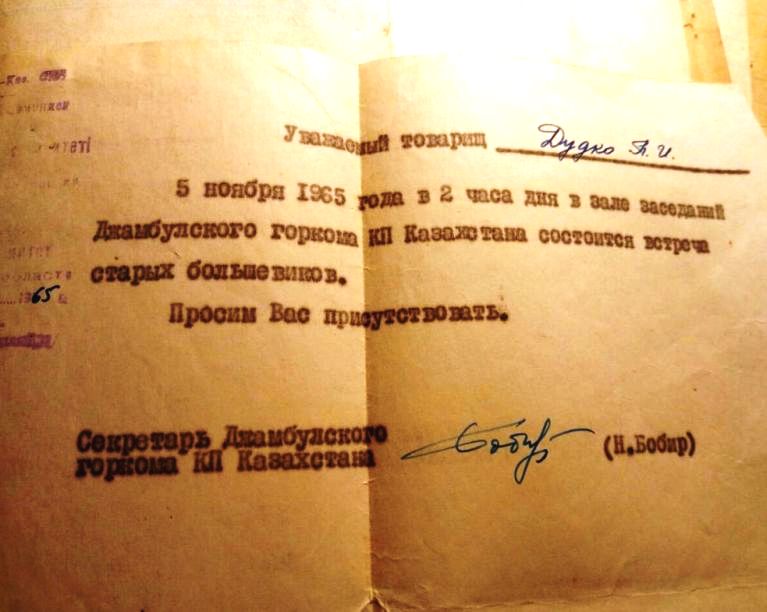 Уважаемый товарищ Дудко П. И.
5 ноября 1965 года в 2 часа дня в зале заседаний
Джамбулского горкома КП Казахстана состоится встреча
старых большевиков.
Просим Вас присутствовать.
Секретарь Джамбулского
горкома КП Казахстана
(Н.Бобир)
65